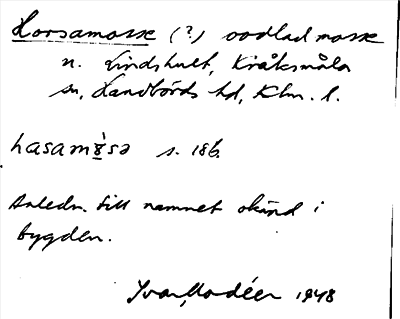 Horsamosse (?) oodlad mosse
n. Lindshult, Kråksmåla
sn, Handbörds hd, Klm. l.
hasamòsə s. 186.
Anledn. till namnet okänd i
bygden.
Ivar Modéer 1948